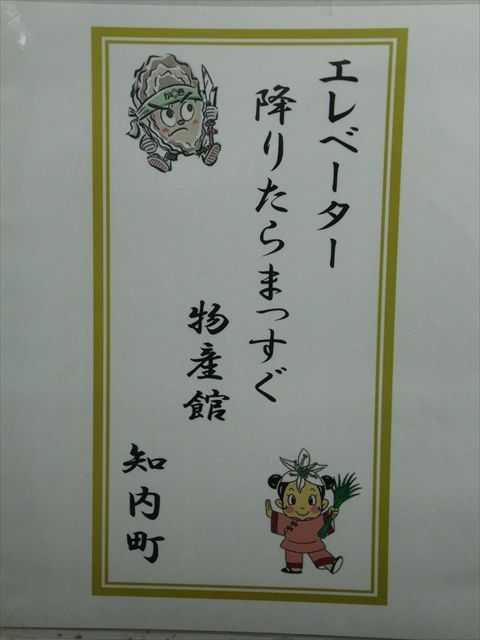 エレベーター
降りたらまっすぐ
物産館
知内町